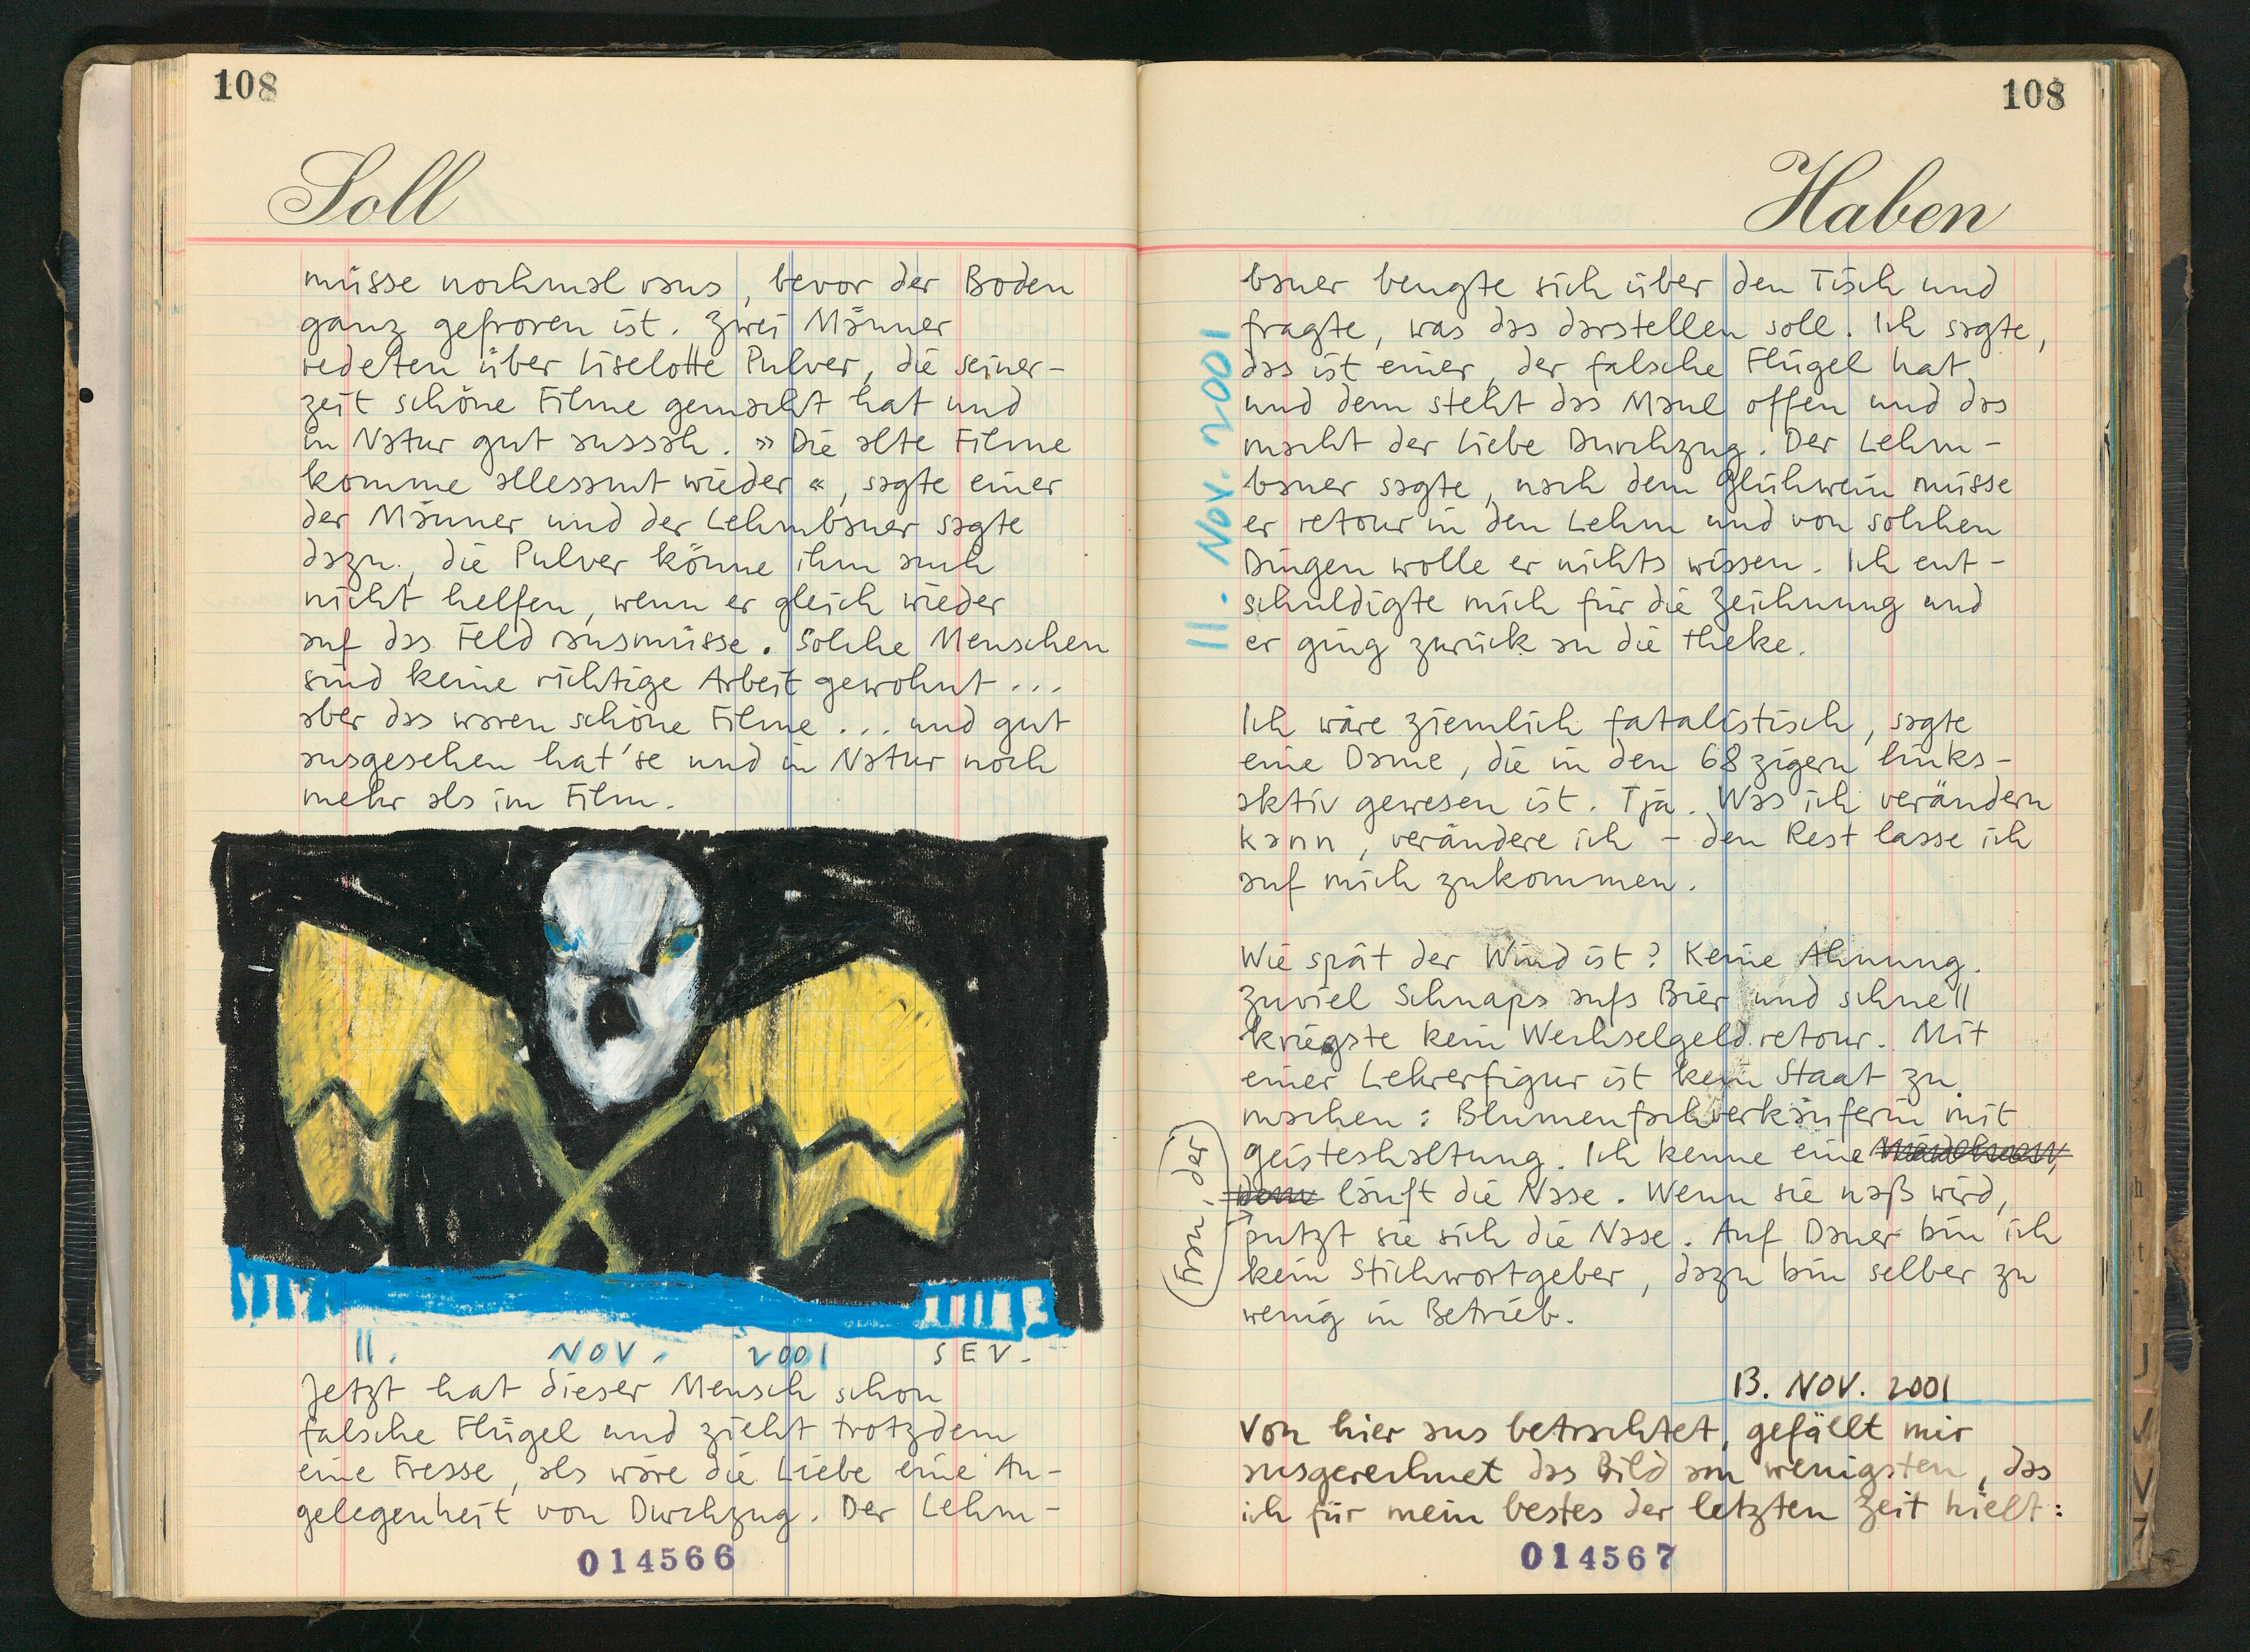 108
Soll
müsse nochmal raus, bevor der Boden
ganz gefroren ist. Zwei Männer
redeten über Liselotte Pulver, die seiner-
zeit schöne Filme gemacht hat und
in Natur gut aussah. »Die alte Filme
komme allesamt wieder«, sagte einer
der Männer und der Lehmbauer sagte
dazu, die Pulver könne ihm auch
nicht helfen, wenn er gleich wieder
auf das Feld rausmüsse. Solche Menschen
sind keine richtige Arbeit gewohnt...
aber das waren schöne Filme... und gut
ausgesehen hat'se und in Natur noch
mehr als im Film.
11. NOV. 2001 SEV-
Jetzt hat dieser Mensch schon
falsche Flügel und zieht trotzdem
eine Fresse, als wäre die Liebe eine An-
gelegenheit von Durchzug. Der Lehm-
014566
108
Haben
11. Nov. 2001
bauer beugte sich über den Tisch und
fragte, was das darstellen soll. Ich sagte,
das ist einer, der falsche Flügel hat
und dem steht das Maul offen und das
macht der Liebe Durchzug. Der Lehm-
bauer sagte, nach dem Glühwein müsse
er retour in den Lehm und von solchen
Dingen wolle er nichts wissen. Ich ent-
schuldigte mich für die Zeichnung und
er ging zurück an die Theke.
Ich wäre ziemlich fatalistisch, sagte
eine Dame, die in den 68zigern links-
aktiv gewesen ist. Tja. Was ich verändern
kann, verändere ich – den Rest lasse ich
auf mich zukommen.
Wie spät der Wind ist? Keine Ahnung.
Zuviel Schnaps aufs Bier und schnell
kriegste kein Wechselgeld retour. Mit
einer Lehrerfigur ist kein Staat zu
machen: Blumenfachverkäuferin mit
Geisteshaltung. Ich kenne eine
Frau, der
läuft die Nase. Wenn sie naß wird,
putzt sie sich die Nase. Auf Dauer bin ich
kein Stichwortgeber, dazu bin selber zu
wenig in Betrieb.
13. NOV. 2001
Von hier aus betrachtet, gefällt mir
ausgerechnet das Bild am wenigsten, das
ich für mein bestes der letzten Zeit hielt:
014567